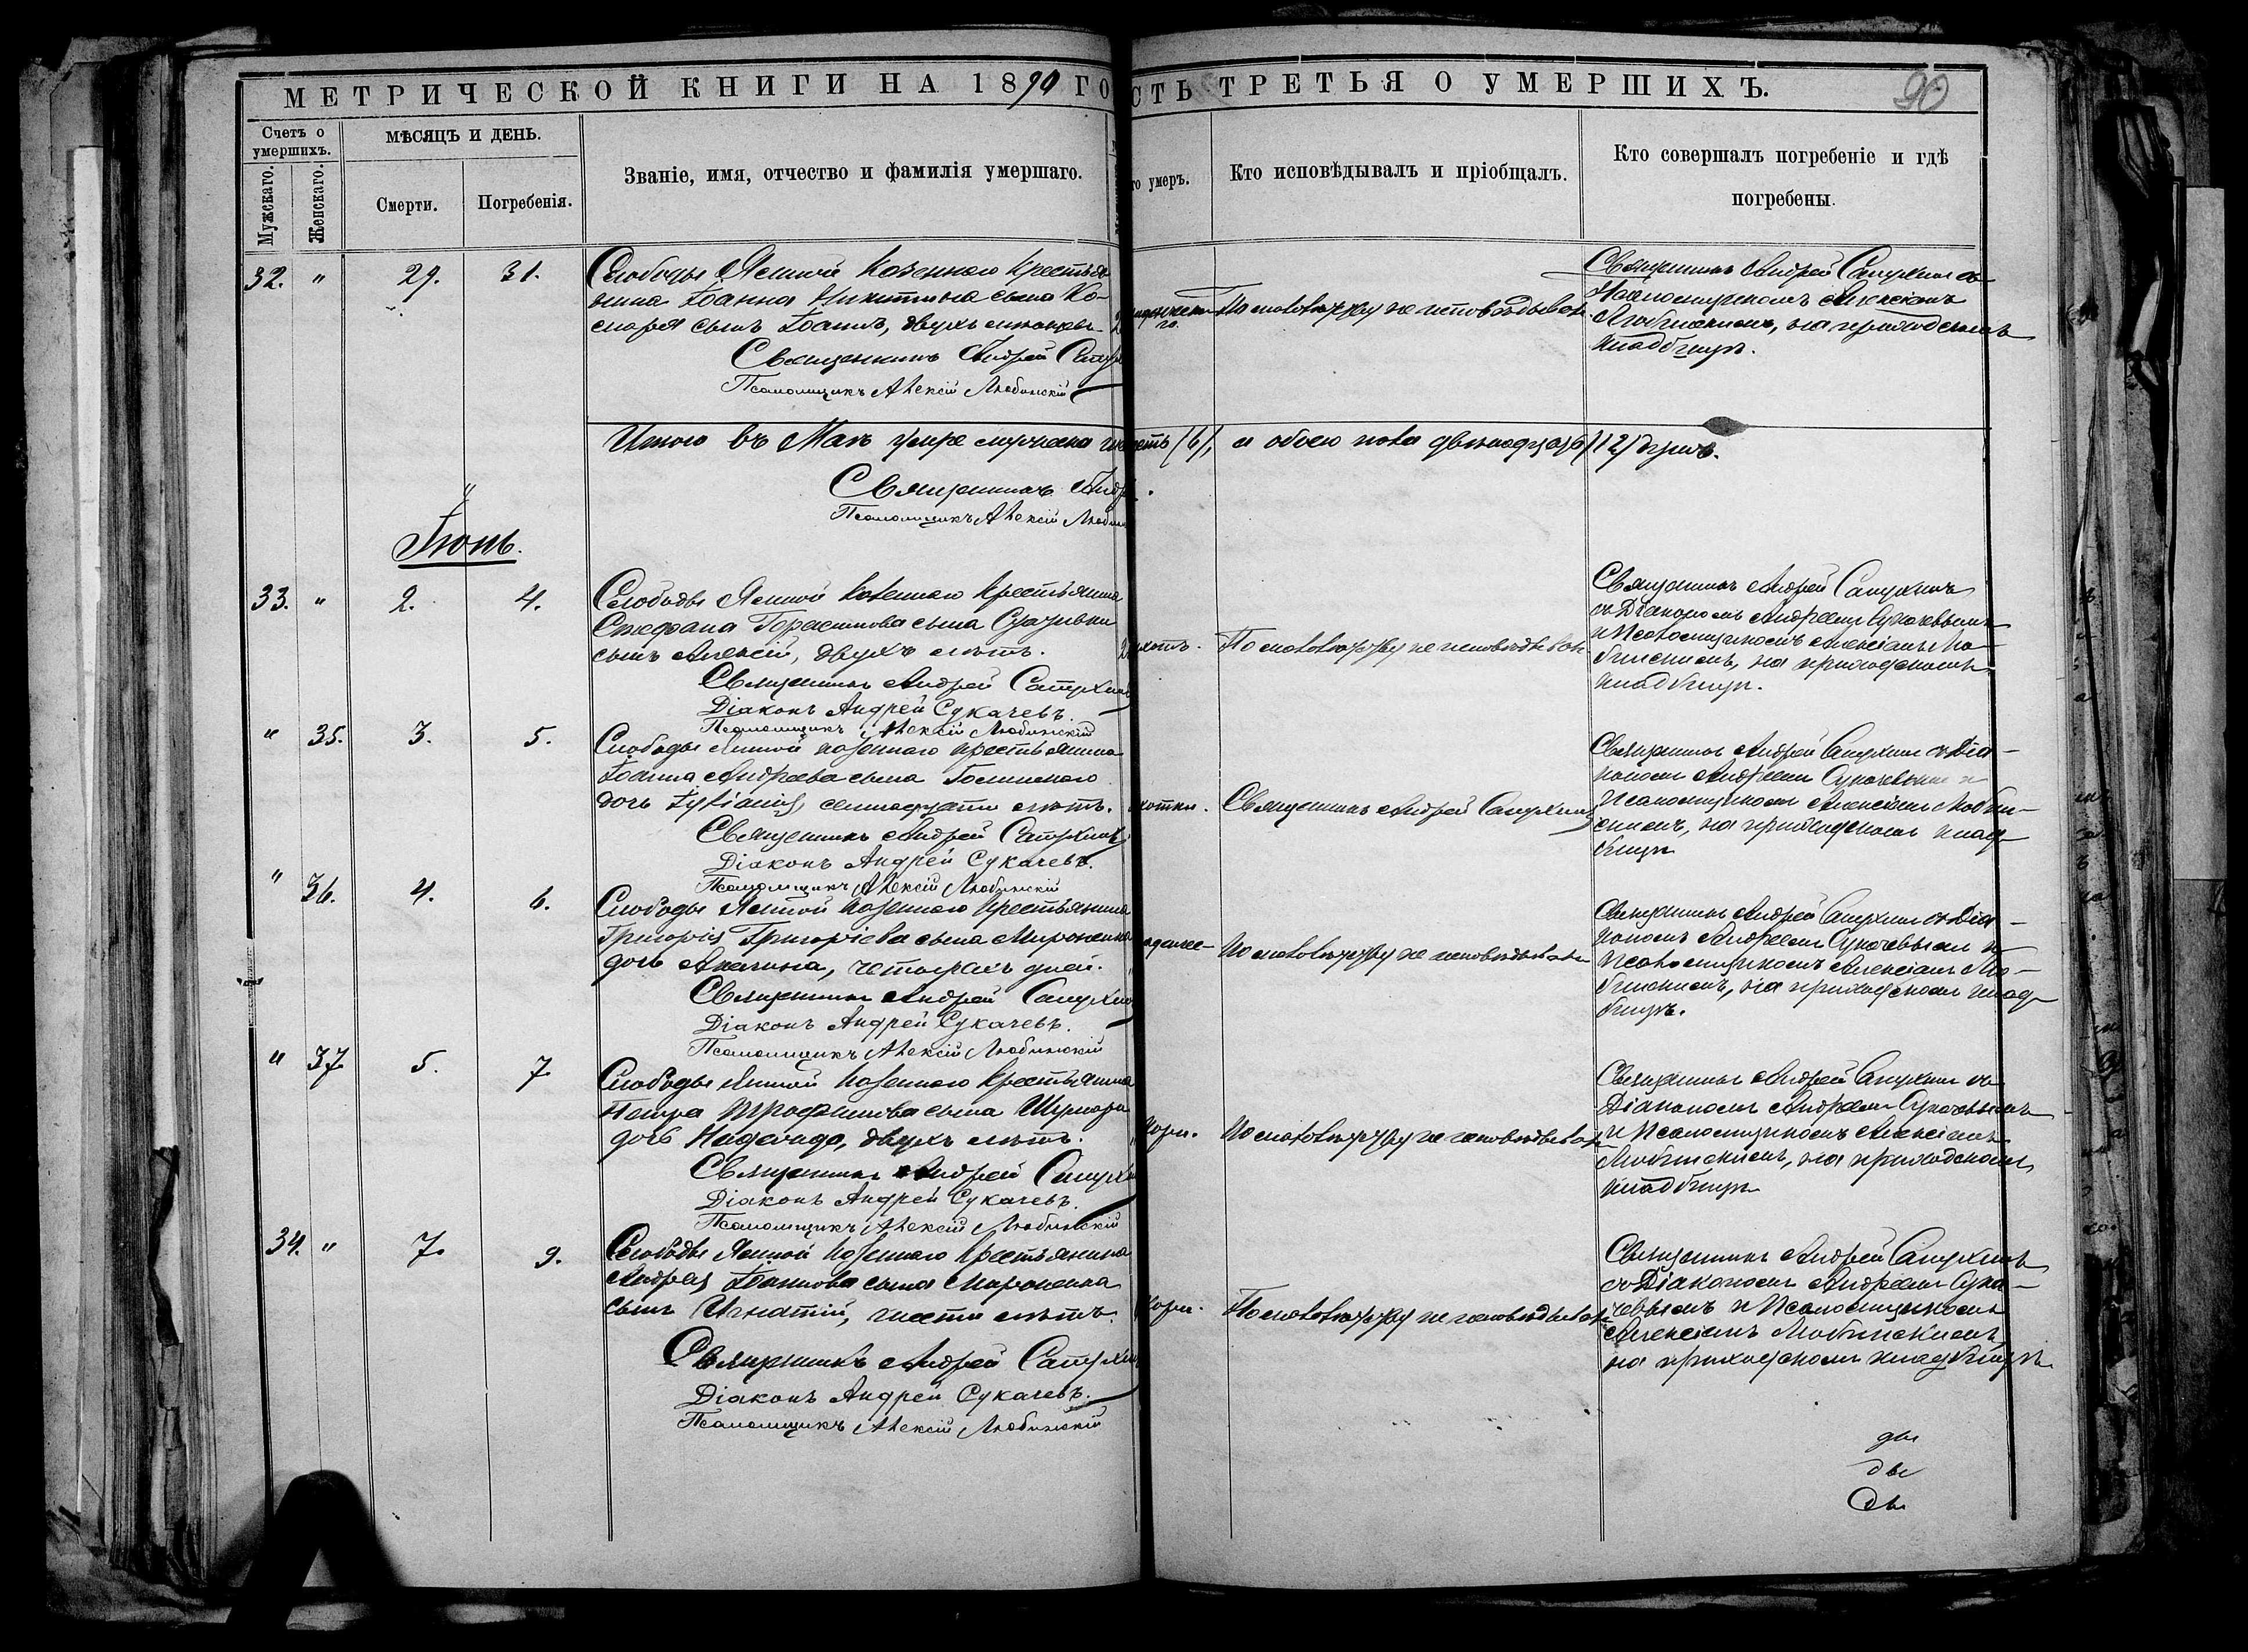 МЕТРИЧЕСКОЙ КНИГИ НА 1890 ГО
СТЬ ТРЕТЬЯ О УМЕРШИХЪ.
90
Счетъ о умершихъ.
Мужскаго.
Женскаго.
МѢСЯЦЪ И ДЕНЬ.
Смерти.
Погребенія.
Званіе, имя, отчество и фамилія умершаго.
го умеръ.
Кто исповѣдывалъ и пріобщалъ.
Кто совершалъ погребеніе и гдѣ
погребены.
32. " 29. 31.
Слободы Ясиной казеннаго крестья
нина Іоанна Никитина сына Ко-
смаря сынъ Іоаннъ, двухъ
Священникъ Андрей Сапух
Псаломщикъ Алексій Любинскій
По малолѣтству не исповѣдыван
Священникъ Андрей Сапухинъ съ
Псаломщикомъ Алексіемъ
Любинскимъ, на приходскомъ
кладбищѣ.
Итого въ Маѣ умре мужеска шесть (6), а обоего пола двѣнадцать (12) душъ.
Священникъ Андр
Псаломщикъ Алексій Любин
Іюнь.
33. " 2. 4.
Слободы Ясиной казеннаго крестьянина
Стефана Герасимова сына
сынъ Алексій, двухъ лѣтъ.
Священникъ Андрей Сапухин
Діаконъ Андрей Сукачевъ.
Псаломщикъ Алексій Любинскій
По малолѣтству не исповѣдыван
Священникъ Андрей Сапухинъ
съ Діакономъ Андреемъ Сукачевымъ
и Псаломщикомъ Алексіемъ Лю-
бинскимъ, на приходскомъ
кладбищѣ.
" 35. 3. 5.
Слободы Ясиной казеннаго крестьянина
Іоанна Андреева сына
дочь семнадцати лѣтъ.
Священникъ Андрей Сапухинъ
Діаконъ Андрей Сукачевъ.
Псаломщикъ Алексій Любинскій
хотки.
Священникъ Андрей Сапухинъ
Священникъ Андрей Сапухинъ съ Діа-
кономъ Андреемъ Сукачевымъ и
Псаломщикомъ Алексіемъ Любин-
скимъ, на приходскомъ клад-
бищѣ
" 36. 4. 6.
Слободы Ясиной казеннаго крестьянина
Григорія Григоріева сына Мироненка
дочь Акилина, четырехъ дней.
Священникъ Андрей Сапухин
Діаконъ Андрей Сукачевъ.
Псаломщикъ Алексій Любинскій
По малолѣтству не исповѣдыван
Священникъ Андрей Сапухинъ съ Діа-
кономъ Андреемъ Сукачевымъ и
Псаломщикомъ Алексіемъ Лю-
бинскимъ, на приходскомъ клад-
бищѣ.
" 37 5. 7
Слободы Ясиной казеннаго крестьянина
Петра Трофимова сына
дочь Надежда, двухъ лѣтъ.
Священникъ Андрей Сапухи
Діаконъ Андрей Сукачевъ.
Псаломщикъ Алексій Любинскій
Кори.
По малолѣтству не исповѣдыван
Священникъ Андрей Сапухинъ съ
Діакономъ Андреемъ Сукачевымъ
и Псаломщикомъ Алексіемъ
Любинскимъ, на приходскомъ
кладбищѣ
34. " 7. 9.
Слободы Ясиной казеннаго крестьянина
Андрея Іоаннова сына Мироненка
сынъ Игнатій, шести лѣтъ.
Священникъ Андрей Сапухин
Діаконъ Андрей Сукачевъ.
Псаломщикъ Алексій Любинскій
Кори.
По малолѣтству не исповѣдыван
Священникъ Андрей Сапухинъ
съ Діакономъ Андреемъ Сука-
чевымъ и Псаломщикомъ
Алексіемъ Любинскимъ
на приходскомъ кладбищѣ